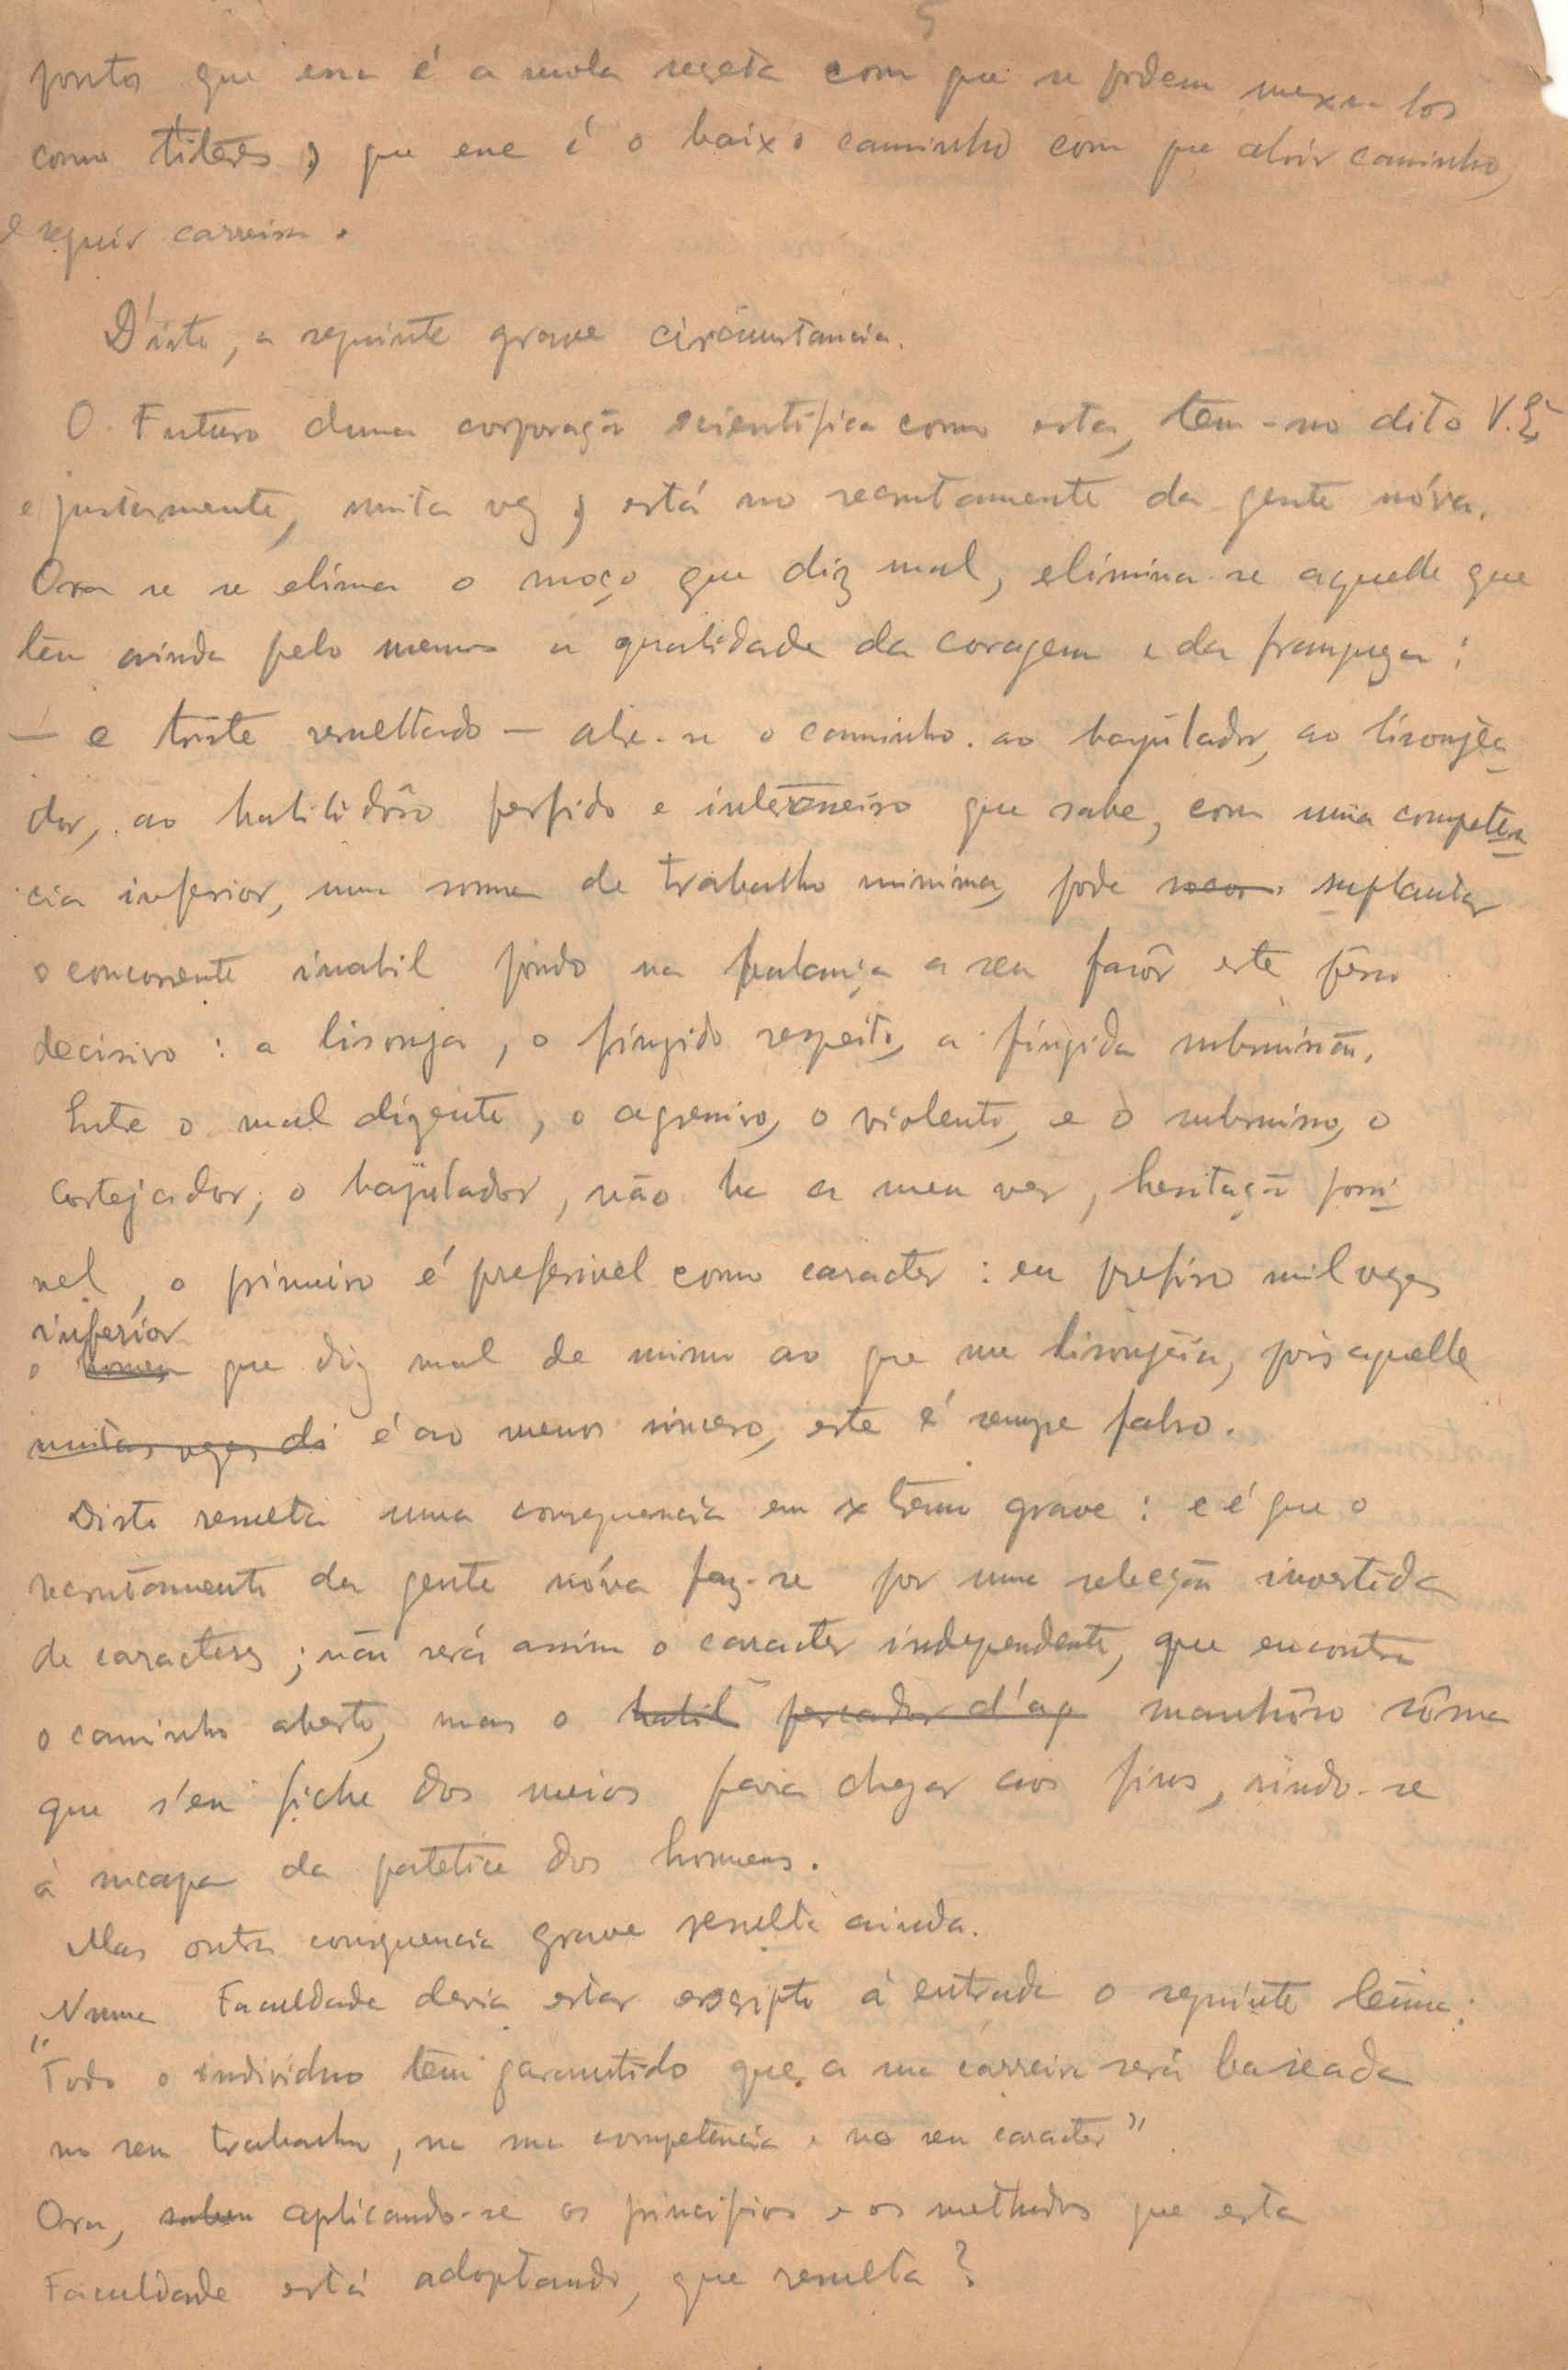 5
pontos que essa é a mola secreta com que se podem mexe-los
como titeres, que esse é o baixo caminho com que abrir caminho,
e seguir carreira.
D'isto, a seguinte grave circumstancia.
O Futuro duma corporação scientifica como esta, tem-no dito V. Ex
e justamente, muita vez, está no recrutamento da gente nóva.
Ora se se elima o moço que diz mal, elimina-se aquelle que
tem ainda pelo menos a qualidade da coragem e da franqueza:
— e triste resultado — abre-se o caminho ao bajulador, ao lisongea
dor, ao habilidôso perfido e interesseiro que sabe, com uma competen
cia inferior, uma somma de trabalho minima, pode suplantar
o concorrente inabil pondo na balança a seu favôr este pêso
decisivo: a lisonja, o fingido respeito, a fingida submissão.
Entre o mal dizente, o agressivo, o violento, e o submisso, o
cortejador, o bajulador, não ha a meu ver, hesitação possi
vel, o primeiro é preferivel como caracter: eu prefiro mil vezes
inferior
o homem que diz mal de mimo ao que me lisongeia, pois aquelle
muitas vezes di é ao menos sincero, este é sempre falso.
Disto resulta uma consequencia em extremo grave: e é que o
recrutamento da gente nóva faz-se por uma selecção invertida
de caracteres; não será assim o caracter independente, que encontra
o caminho aberto, mas o habil pescador d'ag manhôso
que s'en fiche dos meios para chegar aos fins, rindo-se
à socapa da patetice dos homens.
Mas outra consequencia grave resulta ainda.
Numa Faculdade devia estar escripto á entrada o seguinte lema:
"Todo o individuo tem garantido que a sua carreira será baseada
no seu trabalho, na sua competencia e no seu caracter"
Ora, aplicando-se os principios e os methodos que esta
Faculdade está adoptando, que resulta?